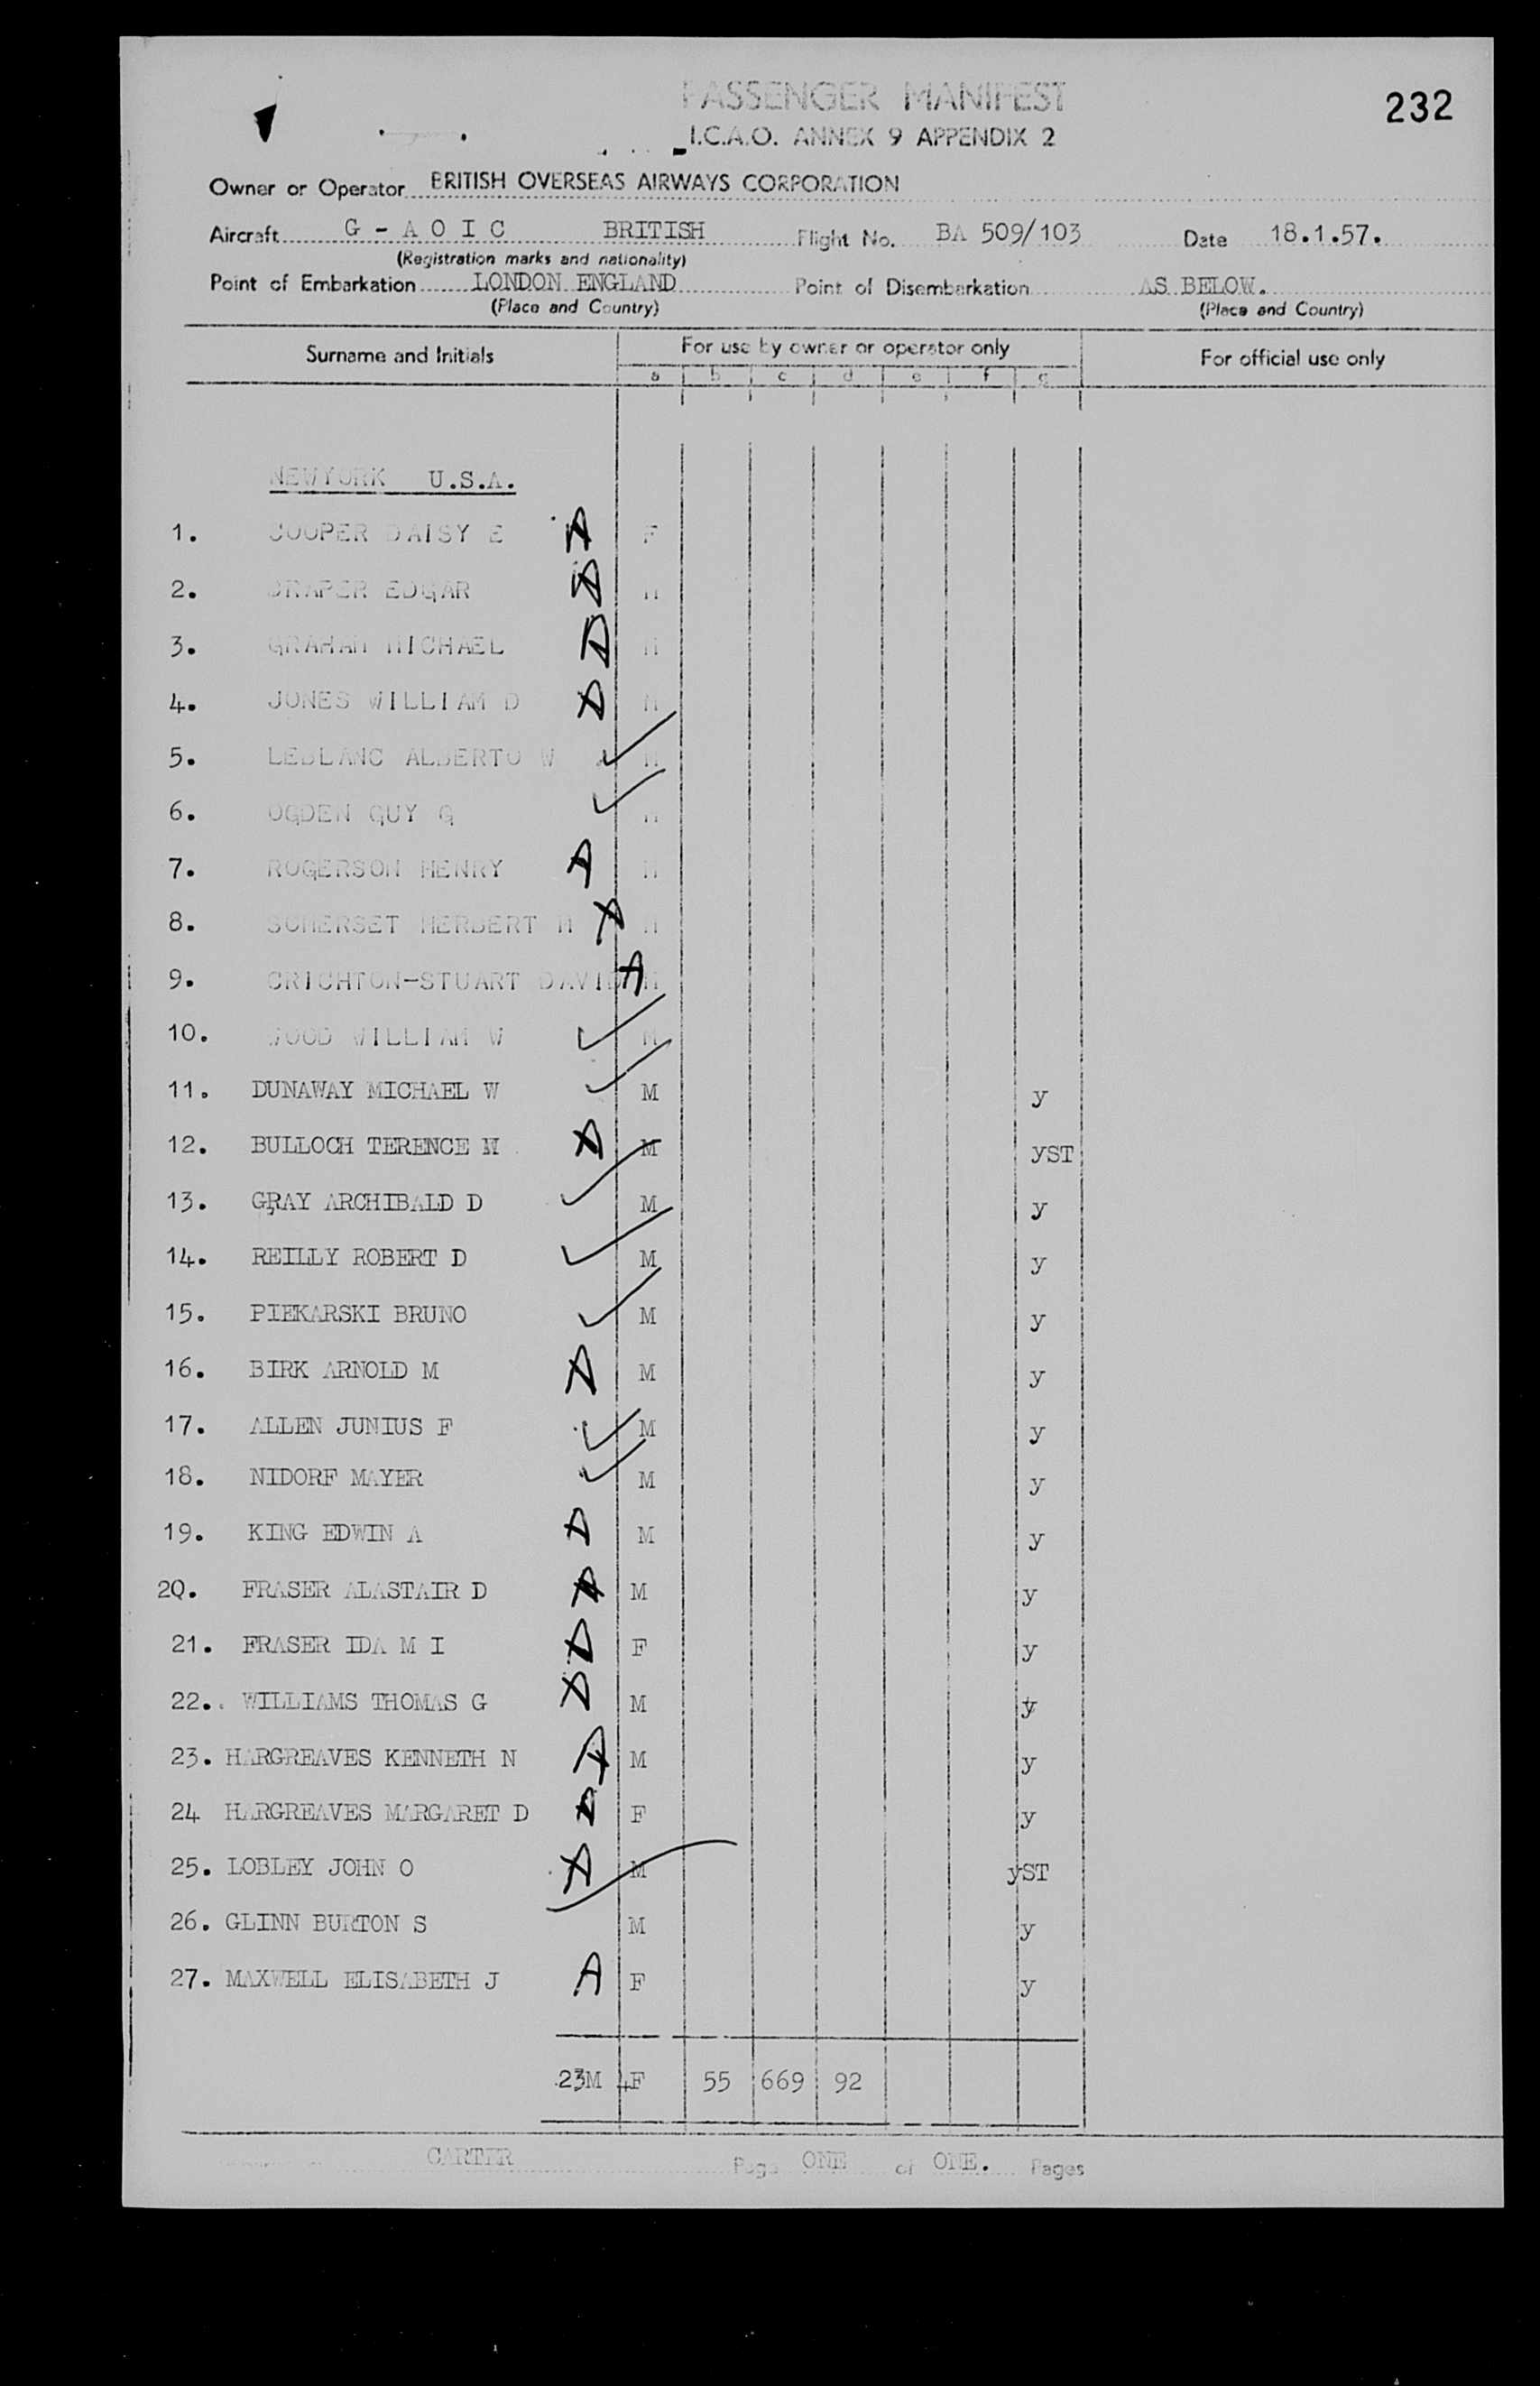 PASSENGER MANIFEST
232
I.C.A.O. ANNEX 9 APPENDIX 2
Owner or Operator BRITISH OVERSEAS AIRWAYS CORPORATION
Aircraft G - A O I C BRITISH Flight No. BA 509/103 Date 18.1.57.
(Registration marks and nationality)
Point of Embarkation LONDON ENGLAND Point of Disembarkation AS BELOW.
(Place and Country) (Place and Country)
Surname and Initials For use by owner or operator only For official use only
a b c d e f g
NEWYORK U.S.A.
1. COOPER DAISY E A F
2. DRAPER EDGAR A M
3. GRAHAM MICHAEL A M
4. JONES WILLIAM D A M
5. LEBLANC ALBERTO W ✓ M
6. OGDEN GUY G ✓ M
7. ROGERSON HENRY A M
8. SOMERSET HERBERT M A M
9. CRICHTON-STUART DAVID A M
10. WOOD WILLIAM W ✓ M
11. DUNAWAY MICHAEL W ✓ M y
12. BULLOCH TERENCE M A M yST
13. GRAY ARCHIBALD D ✓ M y
14. REILLY ROBERT D ✓ M y
15. PIEKARSKI BRUNO ✓ M y
16. BIRK ARNOLD M A M y
17. ALLEN JUNIUS F ✓ M y
18. NIDORF MAYER ✓ M y
19. KING EDWIN A A M y
20. FRASER ALASTAIR D A M y
21. FRASER IDA M I A F y
22. WILLIAMS THOMAS G A M y
23. HARGREAVES KENNETH N A M y
24 HARGREAVES MARGARET D A F y
25. LOBLEY JOHN O A M yST
26. GLINN BURTON S ✓ M y
27. MAXWELL ELISABETH J A F y
23M 4F 55 669 92
CARTER Page ONE of ONE. Pages